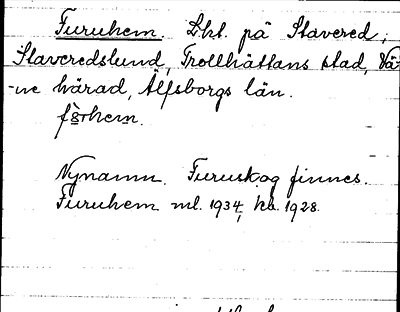 Furuhem. Lht. på Stavered,
Slaveredslund, Trollhättans stad, Vä-
-ne härad, Älfsborgs län.
Nynamn. Furuskog finnes.
Furuhem ml. 1934, ha. 1928.